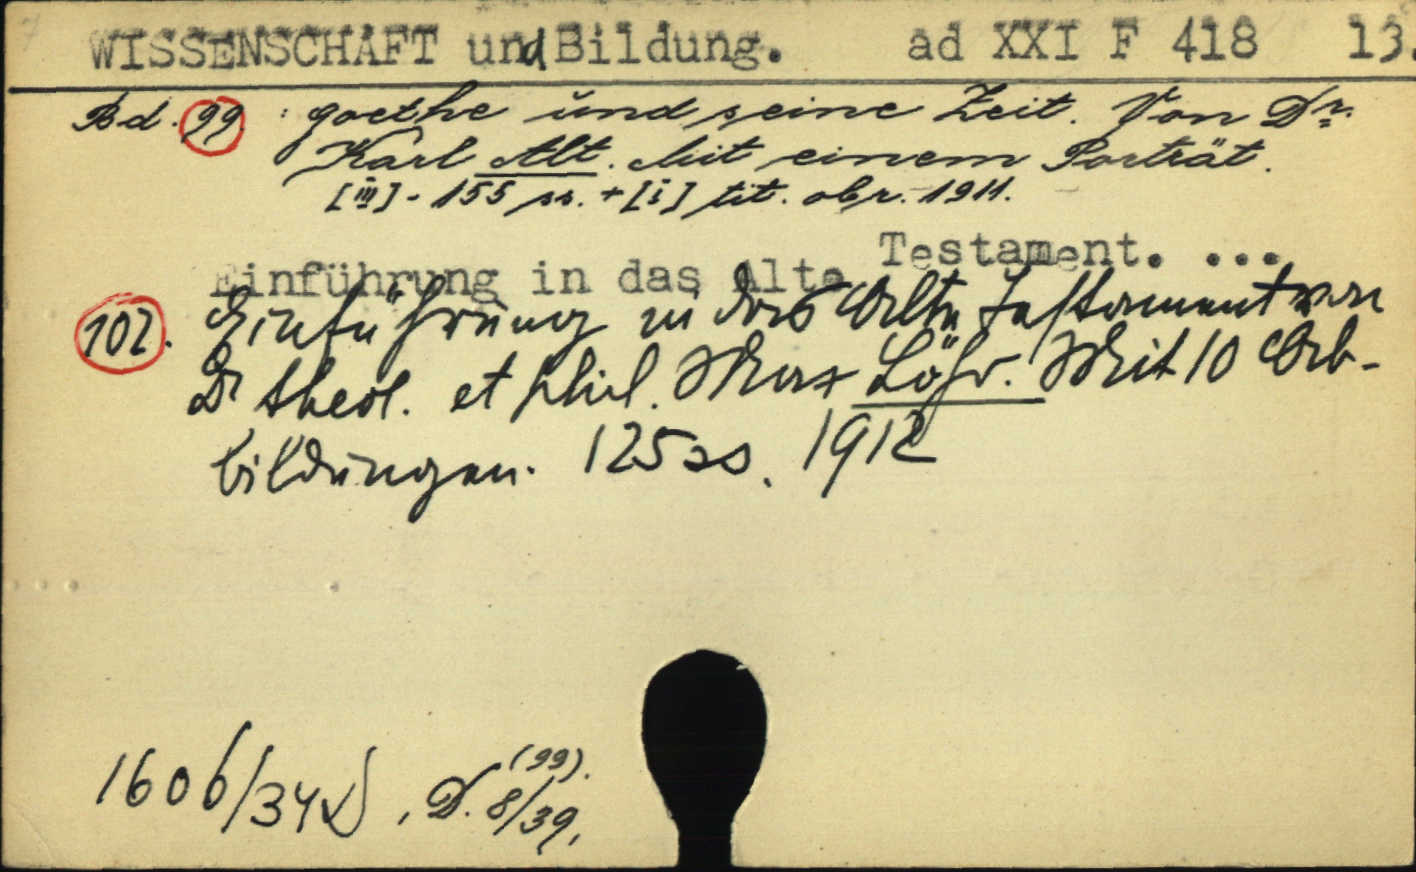 WISSENSCHAFT und Bildung. ad XXI F 418 13.
Bd. 99. : Goethe und seine Zeit. Von Dr.
Karl Alt. Mit einem Porträt.
[III] - 155 ss. + [i] tit. obr. 1911.
Einführung in das Alte Testament. ...
102. Einführung in das Alte Testament von
Dr theol. et phil. Max Löhr. Mit 10 Ab-
bildungen. 125 ss. 1912
(99).
1606/34 D, D. 8/39,